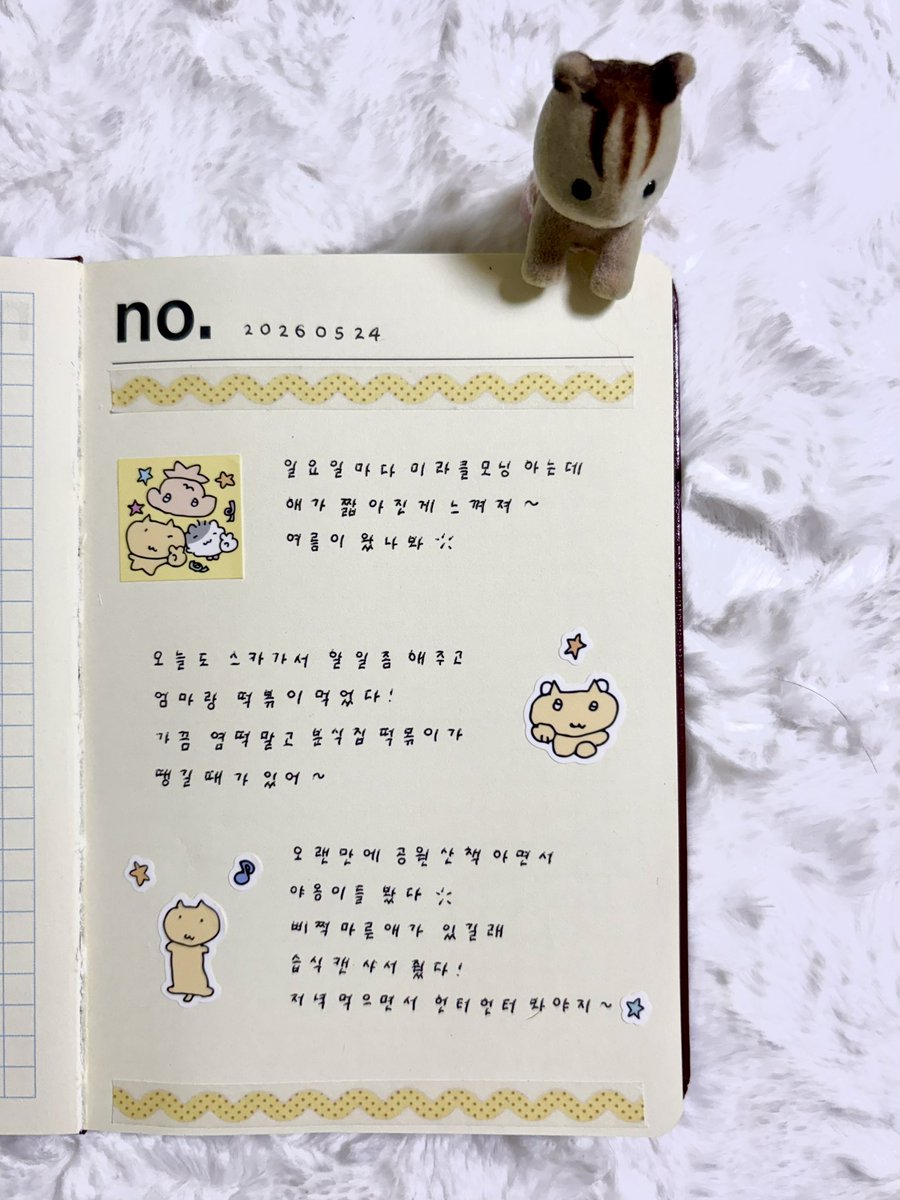 no. 20260524
일요일마다 미라클모닝 하는데
해가 짧아진게 느껴져~
여름이 왔나봐
오늘도 스카가서 할일좀 해주고
엄마랑 떡볶이먹었다!
가끔 엽떡말고 분식집떡볶이가
땡길때가 있어~
오랜만에 공원산책하면서
야옹이들 봤다
삐쩍마른애가 있길래
습식캔 사서 줬다!
저녁먹으면서 언터언터 봐야지~